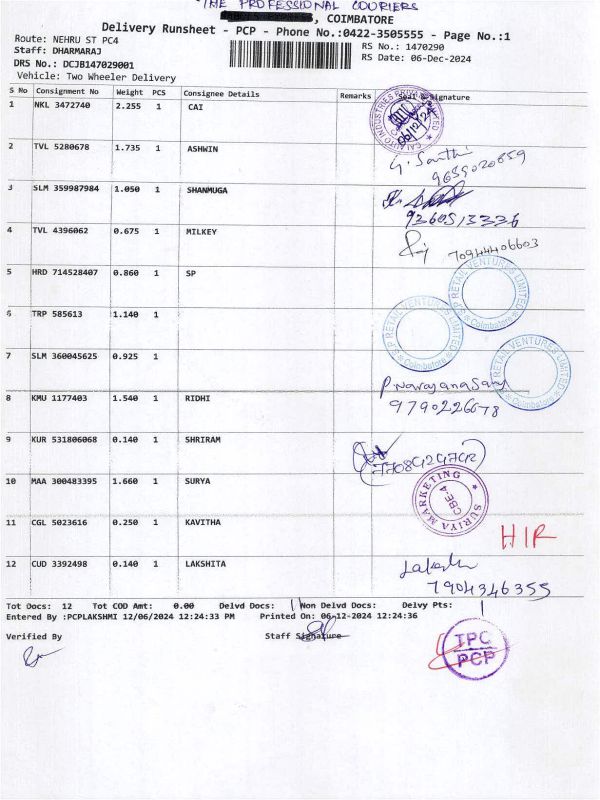 THE PROFESSIONAL COURIERS
, COIMBATORE
Delivery Runsheet - PCP - Phone No.:0422-3505555 - Page No.:1
Route: NEHRU ST PC4
RS No.: 1470290
Staff: DHARMARAJ
RS Date: 06-Dec-2024
DRS No.: DCJB147029001
Vehicle: Two Wheeler Delivery
S No Consignment No Weight PCS Consignee Details Remarks Seal & Signature
1 NKL 3472740 2.255 1 CAI
06/12/24
2 TVL 5280678 1.735 1 ASHWIN
G. Santhi
9659020659
3 SLM 359987984 1.050 1 SHANMUGA
9360513336
4 TVL 4396062 0.675 1 MILKEY
70944406603
5 HRD 714528407 0.860 1 SP
S.P RETAIL VENTURES LIMITED
Coimbatore
6 TRP 585613 1.140 1
S.P RETAIL VENTURES LIMITED
Coimbatore
7 SLM 360045625 0.925 1
S.P RETAIL VENTURES LIMITED
Coimbatore
8 KMU 1177403 1.540 1 RIDHI
P. Narayanasamy
9790226678
9 KUR 531806068 0.140 1 SHRIRAM
10 MAA 300483395 1.660 1 SURYA
SURIYA MARKETING
CBE-4
11 CGL 5023616 0.250 1 KAVITHA
HIR
12 CUD 3392498 0.140 1 LAKSHITA
7904346355
Tot Docs: 12 Tot COD Amt: 0.00 Delvd Docs: 11 Non Delvd Docs: 1 Delvy Pts:
Entered By :PCPLAKSHMI 12/06/2024 12:24:33 PM Printed On: 06-12-2024 12:24:36
Verified By Staff Signature
TPC
PCP